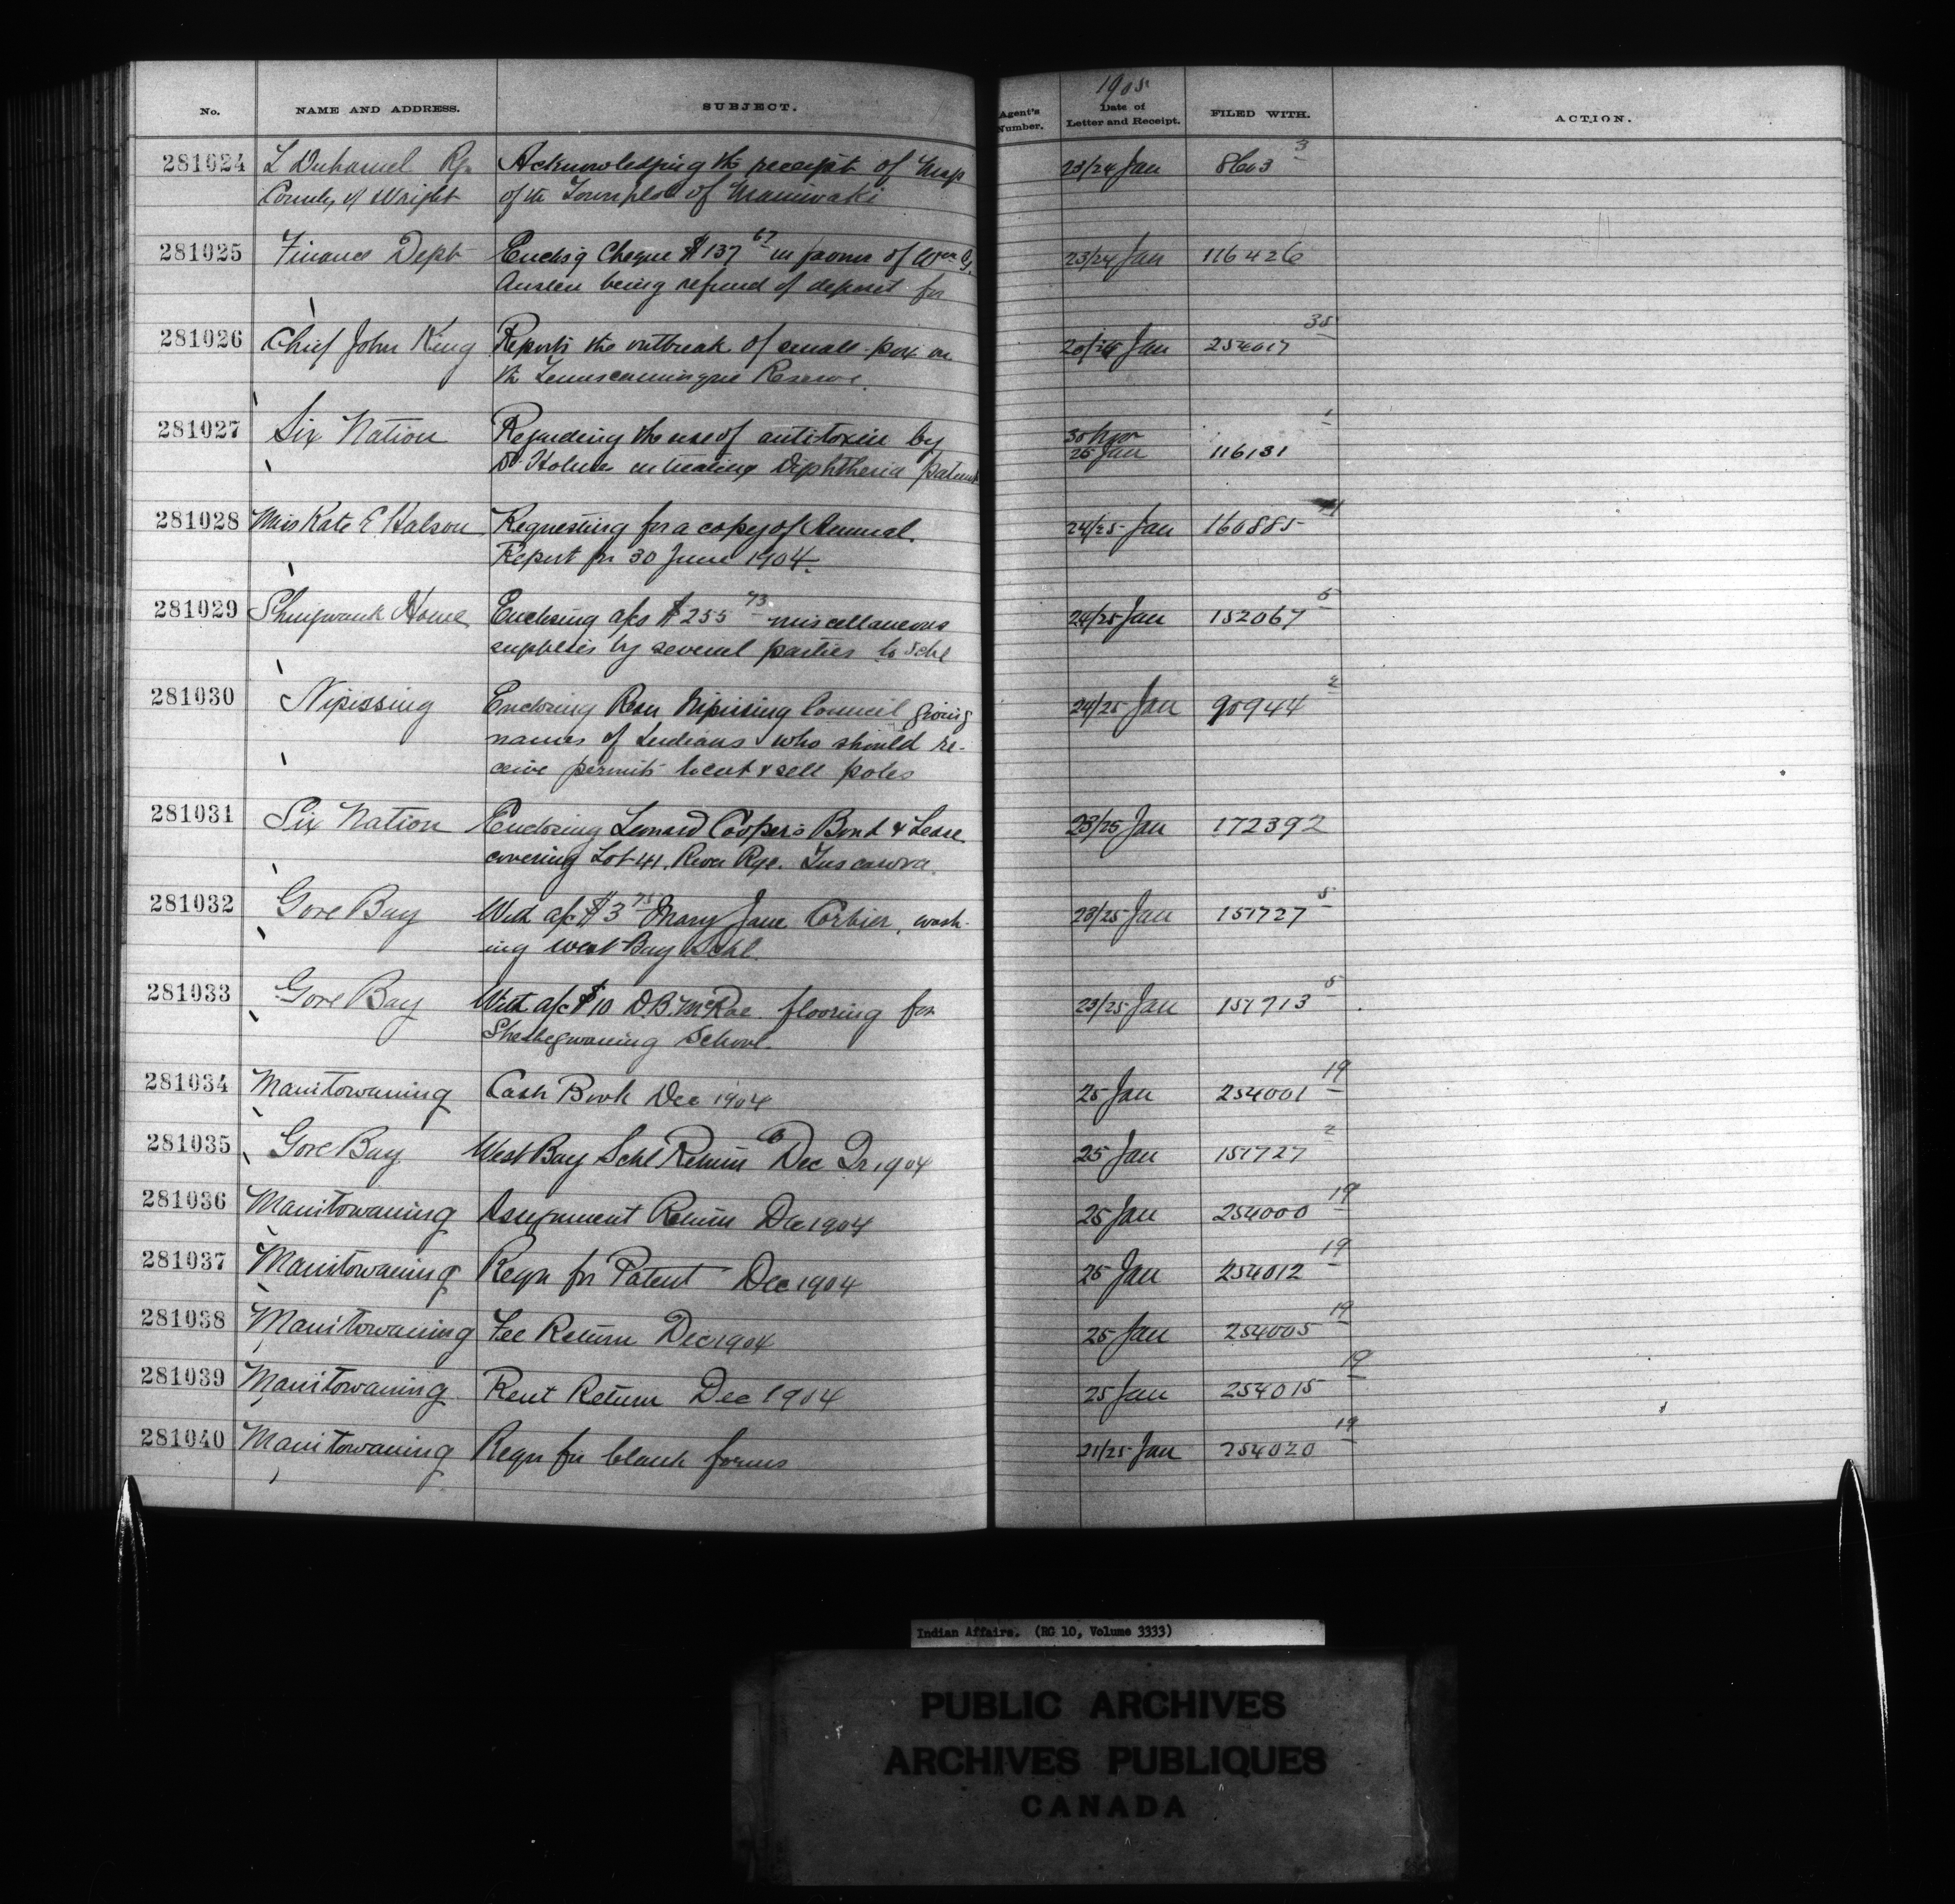 No. NAME AND ADDRESS. SUBJECT. Agent's Number. 1905 Date of Letter and Receipt. FILED WITH. ACTION.
281024 L Duhamel Rgr Acknowledging the receipt of Map 23/24 Jan 8603 3
County of Wright of the Townplot of Maniwaki
281025 Finance Dept Enclsg Cheque $137 67 in favour of Wm G. 23/24 Jan 116426
Austen being refund of deposit for
281026 Chief John King Reports the outbreak of small-pox on 20/25 Jan 254017 35
the Temiscamingue Reserve.
281027 Six Nation Regarding the use of antitoxin by 30 Nov 25 Jan 116131 1
Dr Holmes in treating Diphtheria patients
281028 Miss Kate E. Halson Requesting for a copy of Annual 24/25 Jan 160885
Report for 30 June 1904.
281029 Shingwauk Home Enclosing a/cs $255 73 miscellaneous 24/25 Jan 152067 5
supplies by several parties to Schl
281030 Nipissing Enclosing Resn Nipissing Council giving 24/25 Jan 90944 2
names of Indians who should re-
ceive permits to cut & sell poles
281031 Six Nation Enclosing Leonard Cooper's Bond & Lease 23/25 Jan 172392
covering Lot 41. River Rge. Tuscarora.
281032 Gore Bay With a/c $3 75 Mary Jane Corbier, wash- 23/25 Jan 151727 5
ing West Bay Schl.
281033 Gore Bay With a/c $10 D.B. McRae. flooring for 23/25 Jan 151713 5
Sheshegwaning School.
281034 Manitowaning Cash Book Dec 1904 25 Jan 254001 19
281035 Gore Bay West Bay Schl Return Dec Qr 1904 25 Jan 151727 2
281036 Manitowaning Assignment Return Dec 1904 25 Jan 254000 19
281037 Manitowaning Reqn for Patent Dec 1904 25 Jan 254012 19
281038 Manitowaning Fee Return Dec 1904 25 Jan 254005 19
281039 Manitowaning Rent Return Dec 1904 25 Jan 254015 19
281040 Manitowaning Reqn for blank forms 21/25 Jan 254020 19
Indian Affairs. (RG 10, Volume 3333)
PUBLIC ARCHIVES
ARCHIVES PUBLIQUES
CANADA